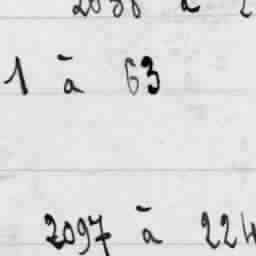 1 à 63
2097 à 224